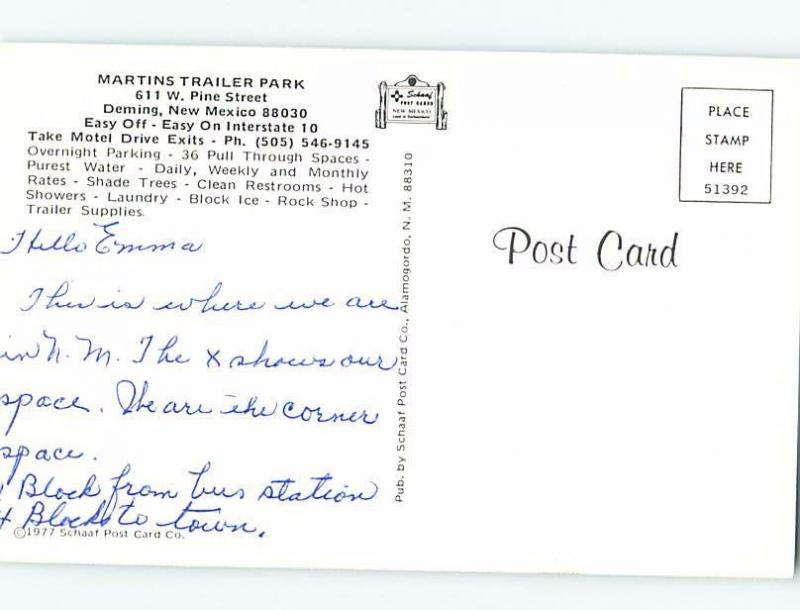 MARTINS TRAILER PARK
611 W. Pine Street
Deming, New Mexico 88030
Easy Off - Easy On Interstate 10
Take Motel Drive Exits - Ph. (505) 546-9145
Overnight Parking - 36 Pull Through Spaces -
Purest Water - Daily, Weekly and Monthly
Rates - Shade Trees - Clean Restrooms - Hot
Showers - Laundry - Block Ice - Rock Shop -
Trailer Supplies.
Hello Emma
This is where we are
in N. M. The X shows our
space. We are the corner
space.
1 Block from bus station
4 Blocks to town.
©1977 Schaaf Post Card Co.
Pub. by Schaaf Post Card Co., Alamogordo, N. M. 88310
Schaaf
POST CARDS
NEW MEXICO
Land of Enchantment
Post Card
PLACE
STAMP
HERE
51392